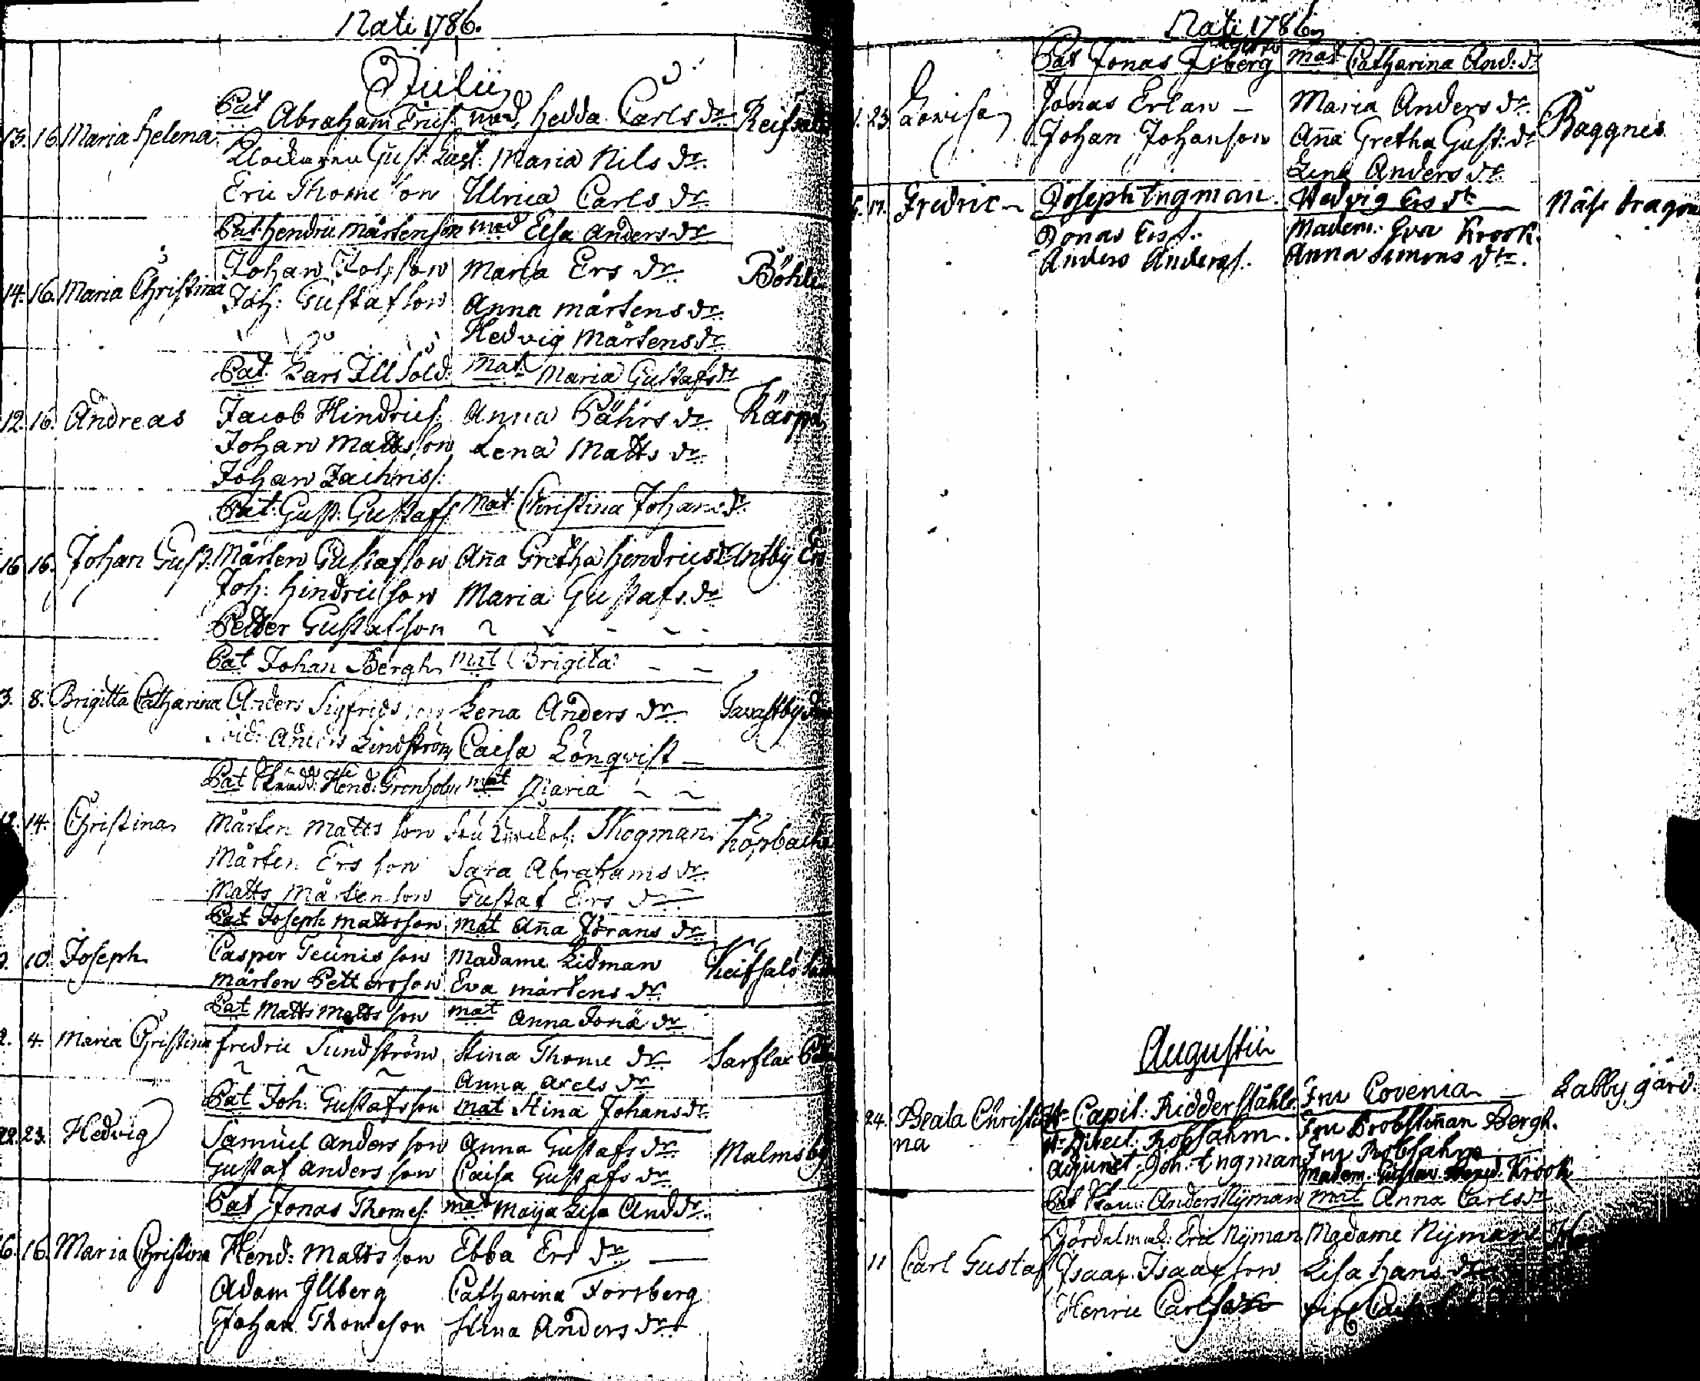 Nati 1786.
Julii
Pat Abraham Erics. mod. Hedda Carls dr.
13. 16. Maria Helena
Gust. Maria Nils dr.
Eric Thomesson Ulrica Carls dr.
Pat Hendric Mårtensson mod Elsa Anders dr
Johan Maria Ers dr. Böhle
14. 16. Maria Christina Joh: Gustafsson Anna Mårtens dr.
Hedvig Mårtens dr.
Pat. Lars Ill Sold: Mat. Maria Gustafs dr
12. 16. Andreas Jacob Hindrics. Anna Påhrs dr.
Johan Mattsson Lena Matts dr.
Johan Zachriss.
Pat. Gust. Gustafs. Mat. Christina Johans dr.
16. 16. Johan Gust. Mårten Gustafsson Aña Gretha Hendrics dr
Joh: Hindricsson Maria Gustafs dr
Petter Gustafsson
Pat Johan Bergh mat Brigita
3. 8. Brigitta Catharina Anders Sigfridsson Lena Anders dr.
Anders Lindström Caisa Lönqvist
Pat Hend: Grönholm mat Maria
14. Christina Mårten Mattsson Skogman
Mårten Ersson Sara Abrahams dr.
Matts Mårtensson Gustaf Ers dr
Pat Joseph Mattsson mat Aña Jörans dr
10. Joseph Casper Teünisson Madame Lidman
Mårten Pettersson Eva Mårtens dr.
Pat Matts Mattsson mat Anna Jona dr
4. Maria Christina Fredric Sundström Stina Thome dr. Sarflax
Anna Axels dr
Pat Joh: Gustafsson mat Stina Johans dr.
22. 23. Hedvig Samuel Andersson Anna Gustafs dr. Malmsby
Gustaf Andersson Caisa Gustafs dr.
Pat Jonas Thomes. mat Maija Lisa And dr.
16. 16. Maria Christina Hend: Mattsson Ebba Ers dr
Adam Illberg Catharina Forsberg
Johan Thomesson Stina Anders dr
Nati 1786
Pat Jonas Isberg mat Catharina And: dr
23. Lovisa Jonas Erlan Maria Anders dr Baggnes
Johan Johansson Aña Gretha Gust: dr
Lena Anders dr.
17. Fredric Joseph Ingman. Hedvig Ers dr
Jonas Erss. Madem. Eva Krook.
Anders Anderss. Anna Simons dtr.
Augustii
24. Beata Christina Hr Capit: Ridderståhle Fru Covenia Labby gård.
Hr Direct: Robsahm. Fru Probstinan Bergh.
Adjunct. Joh: Ingman Fru Robsahm
Madem: Krook
Pat Anders Nyman mat Anna Carls dr
Eric Nyman Madame Nyman
11 Carl Gustaf Isaac Isaacsson Lisa Hans dr
Henric Carlsson